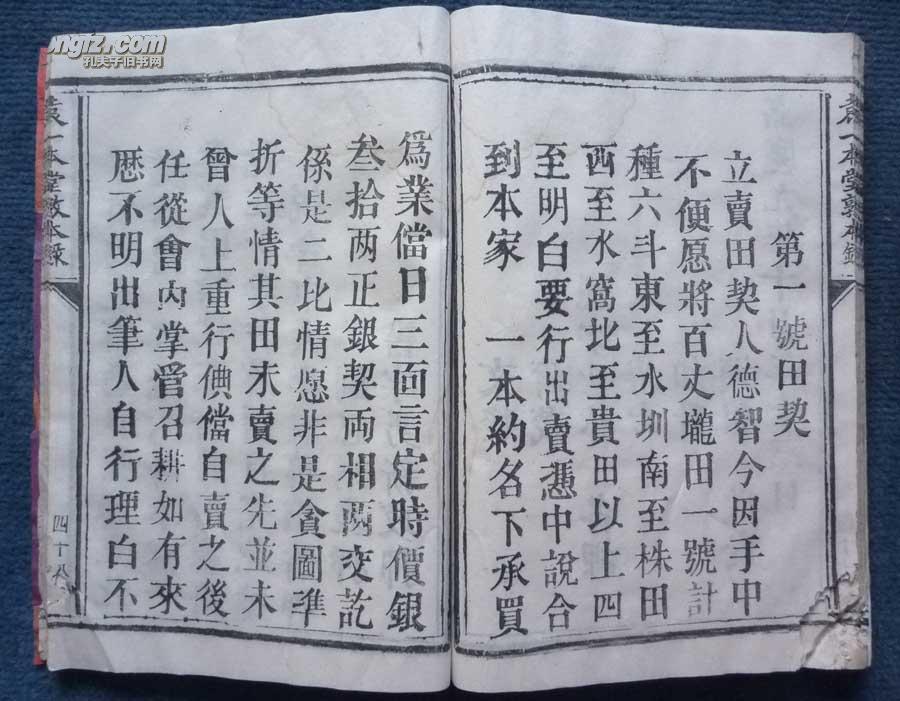 第一號田契
立賣田契人德智今因手中
不便愿將百丈壠田一號計
種六斗東至水圳南至株田
西至水窩北至貴田以上四
至明白要行出賣憑中說合
到本家 一本約名下承買
爲業儅日三面言定時價銀
叁拾两正銀契両相兩交訖
係是二比情愿非是貪圖準
折等情其田未賣之先並未
曾人上重行典儅自賣之後
任從會內掌管召耕如有來
歷不明出筆人自行理白不
一本堂敦本錄
一本堂敦本錄
四十八
孔夫子旧书网
ongfz.com